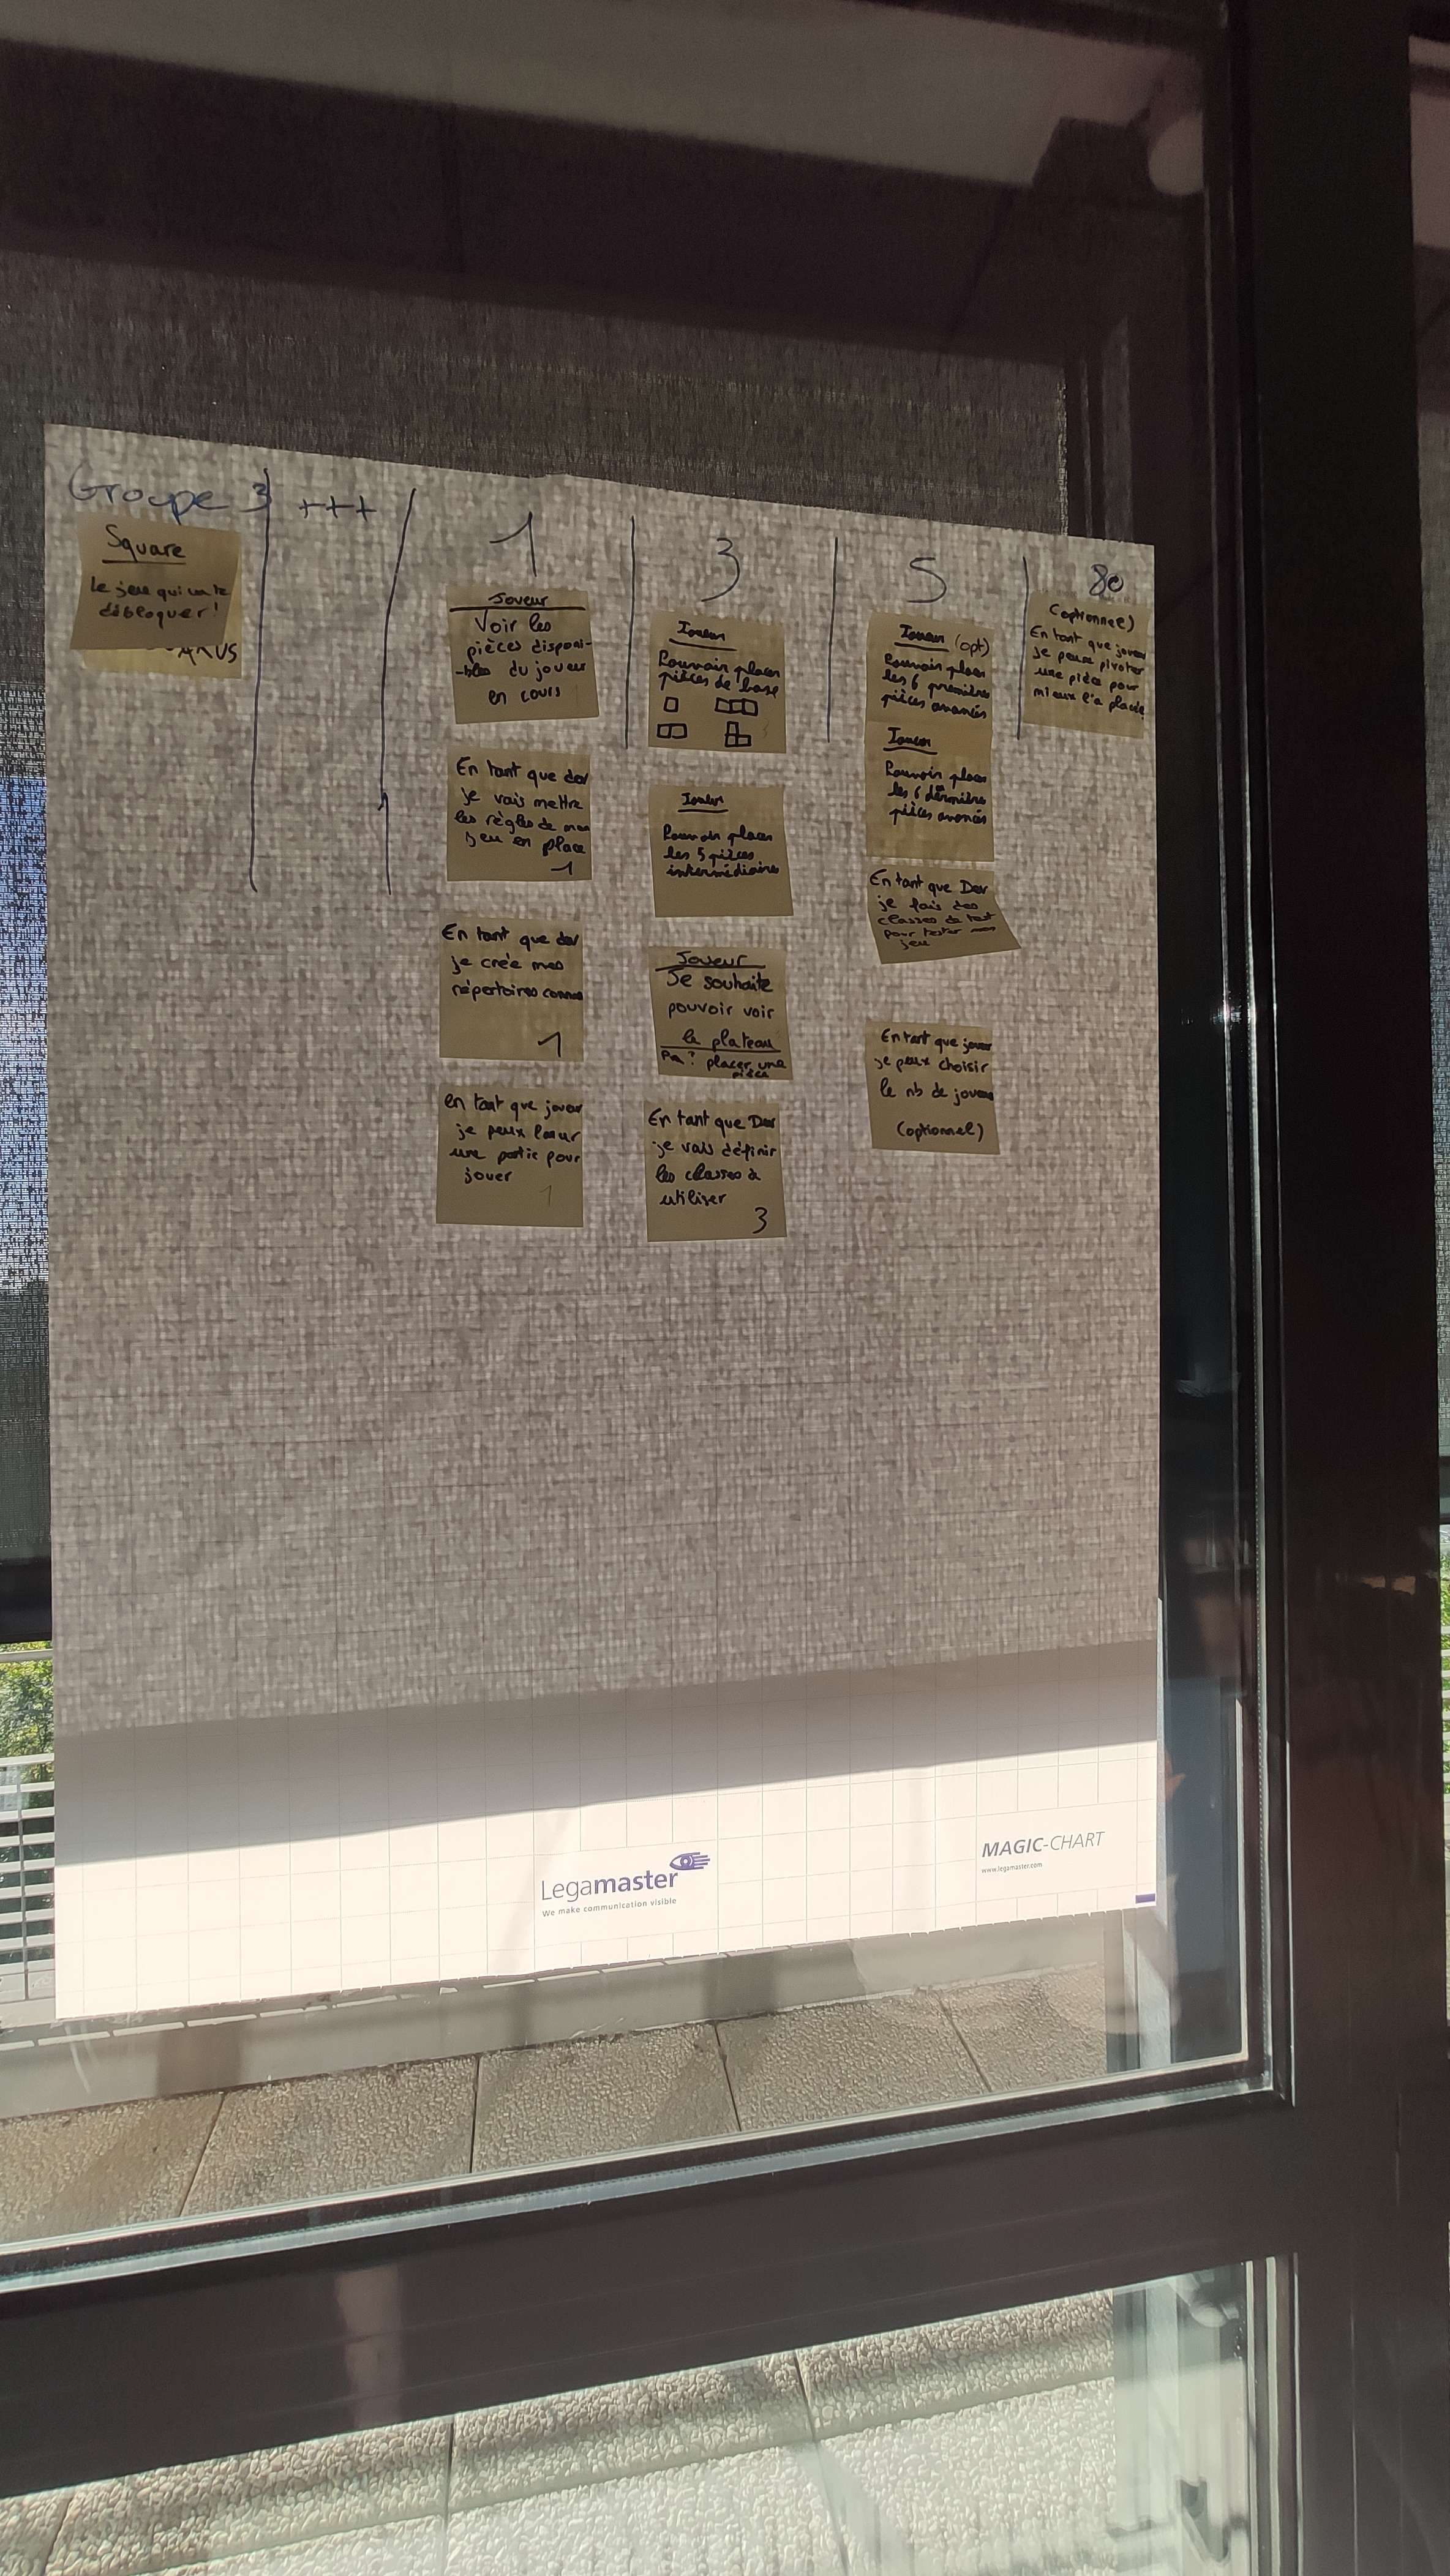 Groupe 3
+++
1
3
5
80
Square
le jeu qui va te
débloquer !
ARUS
Joueur
Voir les
pièces disponi-
-bles du joueur
en cours
En tant que dev
je vais mettre
les règles de mon
jeu en place
1
En tant que dev
je crée mes
répertoires comme
1
en tant que joueur
je peux lancer
une partie pour
jouer
1
Joueur
Pouvoir placer
pièces de base
Joueur
Pouvoir placer
les 5 pièces
intermédiaire
Joueur
Je souhaite
pouvoir voir
le plateau
placer une
pièce
En tant que Dev
je vais définir
les classes à
utiliser
3
Joueur (opt)
Pouvoir placer
les 6 première
pièces avancés
Joueur
Pouvoir placer
les 6 dernière
pièces avancés
En tant que Dev
je fais des
classes de test
pour tester mon
jeu
En tant que joueur
je peux choisir
le nb de joueur
(optionnel)
(optionnel)
En tant que joueur
je peux pivoter
une pièce pour
mieux l'a placée
Legamaster
We make communication visible
MAGIC-CHART
www.legamaster.com